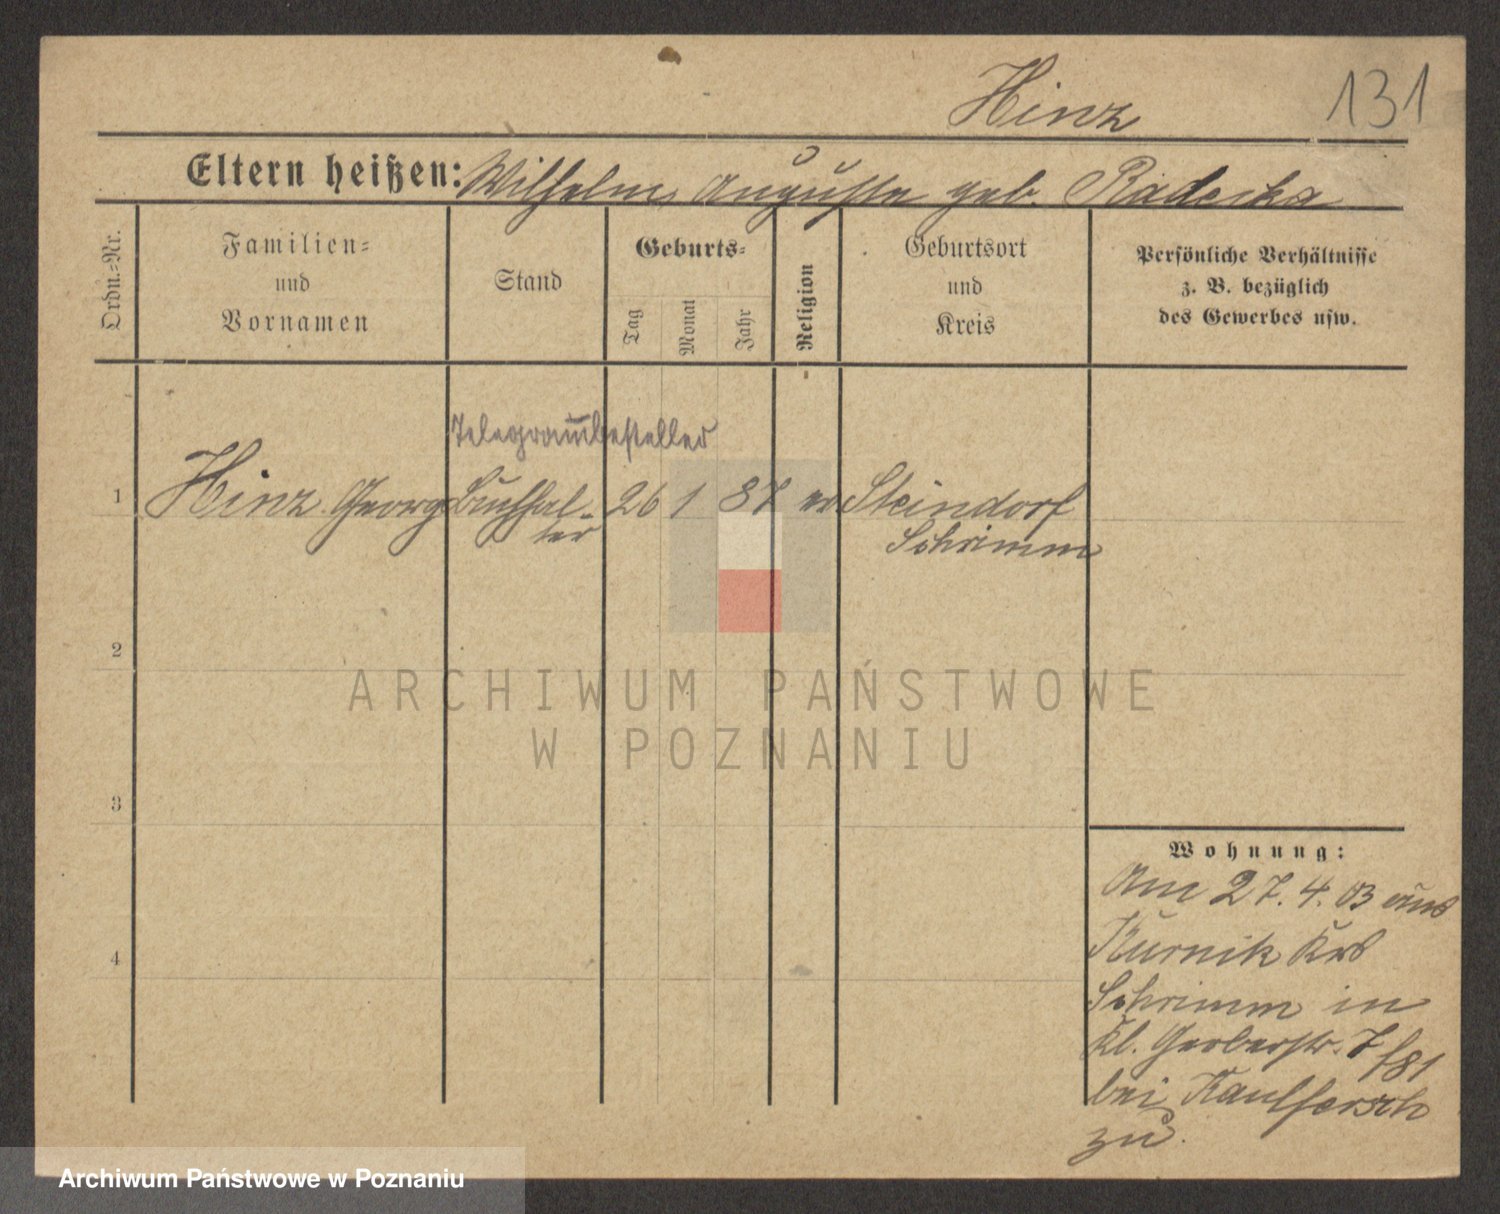 Hinz
131
Eltern heißen: Wilhelm, Auguste geb. Radecka
Ordn.-Nr.
Familien-
und
Vornamen
Stand
Geburts-
Tag
Monat
Jahr
Religion
Geburtsort
und
Kreis
Persönliche Verhältnisse
z. B. bezüglich
des Gewerbes usw.
Telegrambesteller
1 Hinz Georg Buchhal- 26 1 87 ev Steindorf
ter Schrimm
2
3
4
Wohnung:
Am 27.4.03 aus
Kurnik Krs
Schrimm in
Kl. Gerberstr. 7/81
bei
zu.
ARCHIWUM PAŃSTWOWE
W POZNANIU
Archiwum Państwowe w Poznaniu